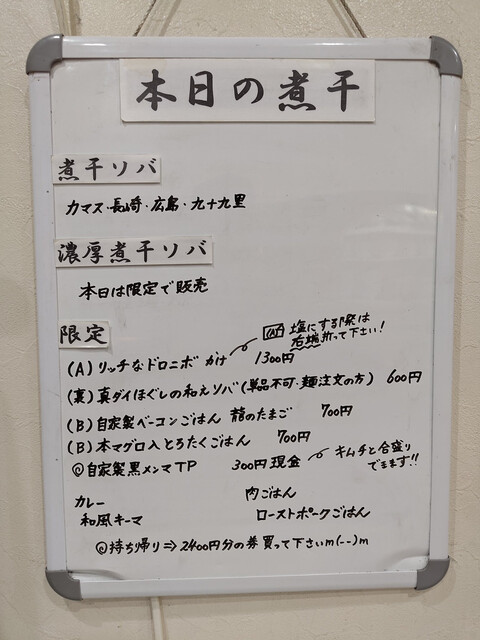 本日の煮干
煮干ソバ
カマス・長崎・広島・九十九里
濃厚煮干ソバ
本日は限定で販売
限定
(A) 塩にする際は
右端折って下さい!
(A) リッチなドロニボ かけ 1300円
(裏) 真ダイほぐしの和えソバ (単品不可・麺注文の方) 600円
(B) 自家製ベーコンごはん 龍のたまご 700円
(B) 本マグロ入とろたくごはん 700円
◎自家製黒メンマTP 300円現金
キムチと合盛り
できます!!
カレー 肉ごはん
和風キーマ ローストポークごはん
◎持ち帰り⇒2400円分の券買って下さいm(--)m